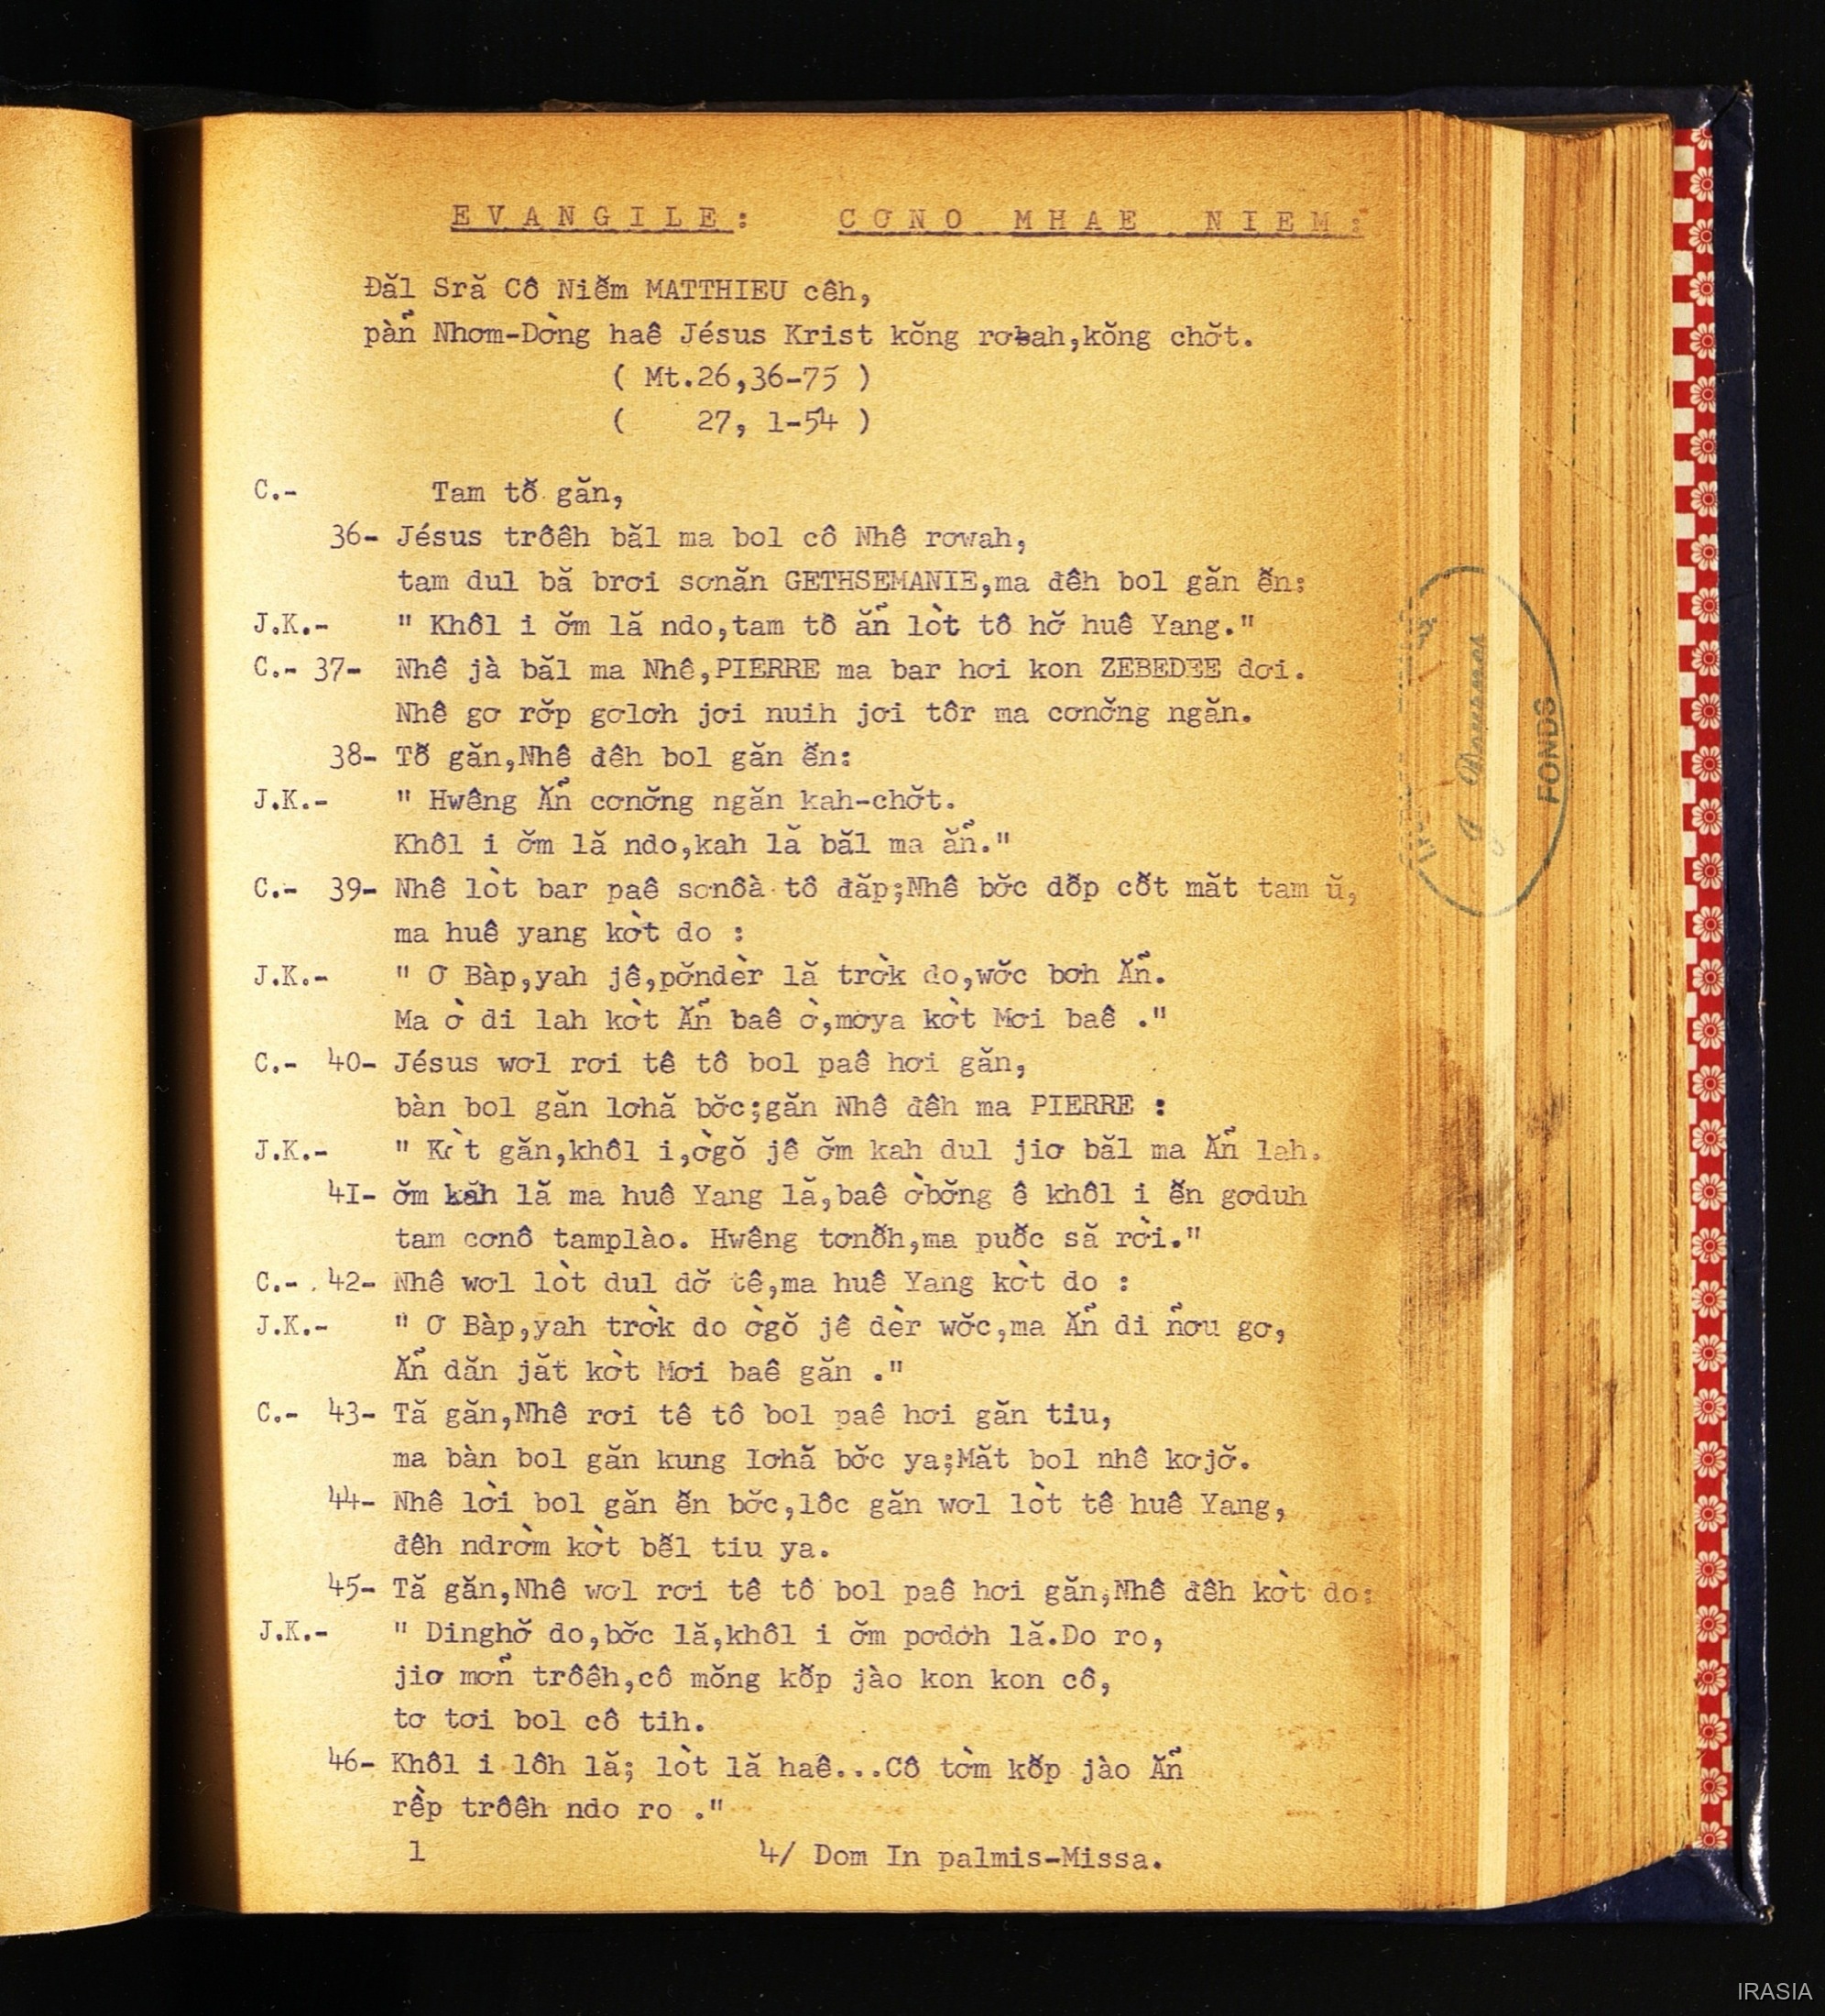 EVANGILE: CƠNO MHAE NIEM:
Đăl Sră Cô Niê̆m MATTHIEU cêh,
pàn̉̃ Nhơm-Dờng haê Jésus Krist kŏng rơbah,kŏng chơ̆t.
( Mt.26,36-75 )
( 27, 1-54 )
C.- Tam tô̆ găn,
36- Jésus trôêh băl ma bol cô Nhê rơwah,
tam dul bă brơi sơnăn GETHSEMANIE,ma đêh bol găn ê̆n:
J.K.- " Khôl i ơ̆m lă ndo,tam tô ăn̉̃ lòt tô hơ̆ huê Yang."
C.- 37- Nhê jà băl ma Nhê,PIERRE ma bar hơi kon ZEBEDEE dơi.
Nhê gơ rơ̆p gơlơh jơi nuih jơi tôr ma cơnơ̆ng ngăn.
38- Tô̆ găn,Nhê đêh bol găn ê̆n:
J.K.- " Hwêng Ăn̉̃ cơnơ̆ng ngăn kah-chơ̆t.
Khôl i ơ̆m lă ndo,kah lă băl ma ăn̉̃."
C.- 39- Nhê lòt bar paê sơnôà tô đăp;Nhê bơ̆c dô̆p cô̆t măt tam ŭ,
ma huê yang kờt do :
J.K.- " Ơ Bàp,yah jê,pơ̆ndèr lă trờk do,wơ̆c bơh Ăn̉̃.
Ma ờ di lah kờt Ăn̉̃ baê ờ,mơya kờt Mơi baê ."
C.- 40- Jésus wơl rơi tê tô bol paê hơi găn,
bàn bol găn lơhă bơ̆c;găn Nhê đêh ma PIERRE :
J.K.- " Kờt găn,khôl i,ờgŏ jê ơ̆m kah dul jiơ băl ma Ăn̉̃ lah.
41- ơ̆m kăh lă ma huê Yang lă,baê ờbơ̆ng ê khôl i ê̆n gơduh
tam cơnô tamplào. Hwêng tơnơ̆h,ma puơ̆c să rời."
C.- 42- Nhê wơl lòt dul dơ̆ tê,ma huê Yang kờt do :
J.K.- " Ơ Bàp,yah trờk do ờgŏ jê dèr wơ̆c,ma Ăn̉̃ di n̉̃ơu gơ,
Ăn̉̃ dăn jăt kờt Mơi baê găn ."
C.- 43- Tă găn,Nhê rơi tê tô bol paê hơi găn tiu,
ma bàn bol găn kung lơhă bơ̆c ya;Măt bol nhê kơjơ̆.
44- Nhê lời bol găn ê̆n bơ̆c,lôc găn wơl lòt tê huê Yang,
đêh ndrờm kờt bê̆l tiu ya.
45- Tă găn,Nhê wơl rơi tê tô bol paê hơi găn;Nhê đêh kờt do:
J.K.- " Dinghơ̆ do,bơ̆c lă,khôl i ơ̆m pơdơh lă.Do ro,
jiơ mơn̉̃ trôêh,cô mŏng kô̆p jào kon kon cô,
tơ tơi bol cô tih.
46- Khôl i lôh lă; lòt lă haê...Cô tờm kô̆p jào Ăn̉̃
rềp trôêh ndo ro ."
1 4/ Dom In palmis-Missa.
FONDS
IRASIA